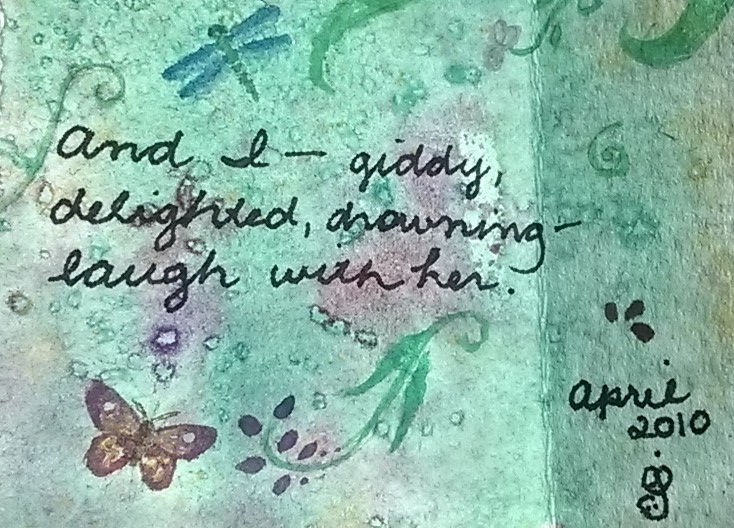 and I — giddy,
delighted, drowning —
laugh with her.
april
2010